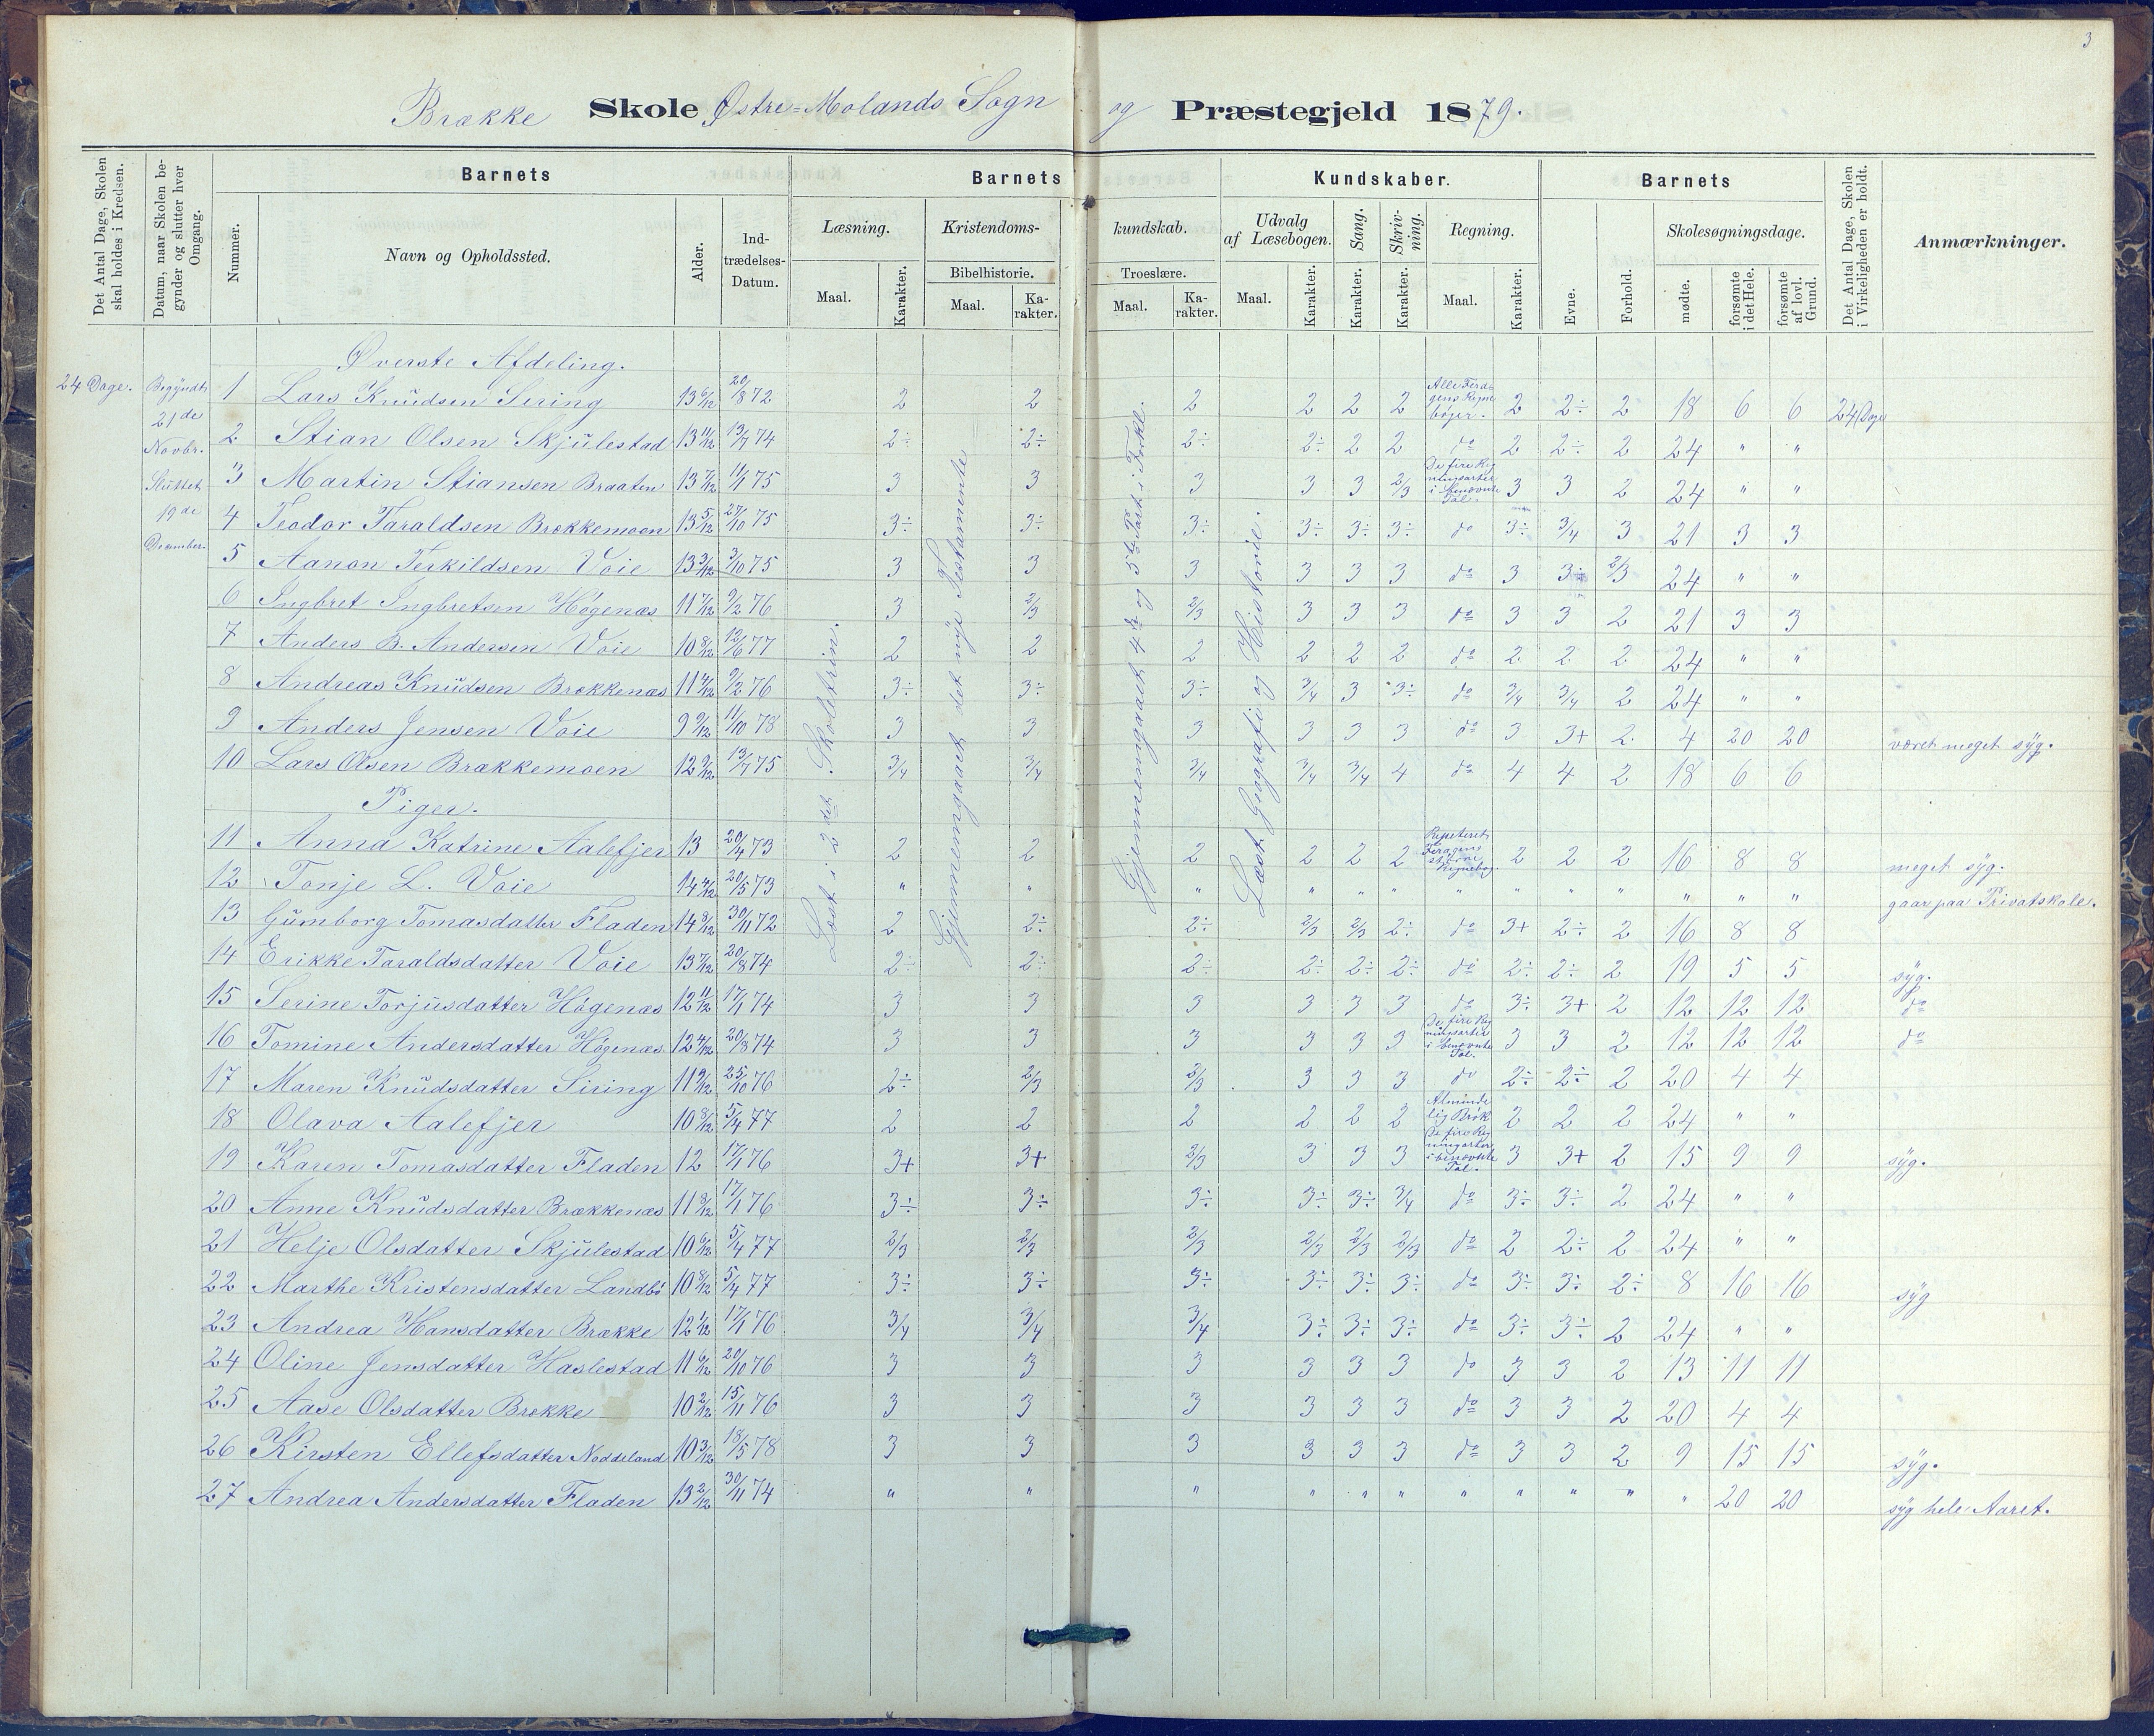 3
Brække Skole Østre=Molands Sogn og Præstegjeld 1879.
Det Antal Dage, Skolen skal holdes i Kredsen.
Datum, naar Skolen begynder og slutter hver Omgang.
Barnets
Nummer.
Navn og Opholdssted.
Alder.
Indtrædelses-Datum.
Barnets Kundskaber.
Læsning.
Maal.
Karakter.
Kristendoms-kundskab.
Bibelhistorie.
Maal.
Karakter.
Troeslære.
Maal.
Karakter.
Udvalg af Læsebogen.
Maal.
Karakter.
Sang.
Karakter.
Skrivning.
Karakter.
Regning.
Maal.
Karakter.
Barnets
Evne.
Forhold.
Skolesøgningsdage.
mødte.
forsømte i det Hele.
forsømte af lovl. Grund.
Det Antal Dage, Skolen i Virkeligheden er holdt.
Anmærkninger.
24 Dage.
Begyndt
21de
Novbr.
Sluttet
19de
December.
Læst i 2det Skoletrin.
Gjennemgaaet det nye Testamente
Gjennemgaaet 4de og 5te Part i Forkl.
Læst Geografi og Historie.
Øverste Afdeling.
1 Lars Knudsen Sering 13 6/12 20/8 72 2 2 2 2 2 2 2 2÷ 2 18 6 6 24 Dage
2 Stian Olsen Skjulestad 13 11/12 13/7 74 2÷ 2÷ 2÷ 2÷ 2 2 do 2 2÷ 2 24 " "
3 Martin Stiansen Braaten 13 7/12 11/1 75 3 3 3 3 3 2/3 De fire Regningsarter i benævnte Tal. 3 3 2 24 " "
4 Teodor Taraldsen Brækkemoen 13 5/12 27/10 75 3÷ 3÷ 3÷ 3÷ 3÷ 3÷ do 3÷ 3/4 3 21 3 3
5 Aanon Terkildsen Voie 13 3/12 3/10 75 3 3 3 3 3 3 do 3 3÷ 2/3 24 " "
6 Ingbret Ingbretsen Høgenæs 11 7/12 9/2 76 3 2/3 2/3 3 3 3 do 3 3 2 21 3 3
7 Anders B. Andersen Voie 10 8/12 12/6 77 2 2 2 2 2 2 do 2 2 2 24 " "
8 Andreas Knudsen Brækkenæs 11 4/12 9/2 76 3÷ 3÷ 3÷ 3/4 3 3÷ do 3/4 3/4 2 24 " "
9 Anders Jensen Voie 9 9/12 11/10 78 3 3 3 3 3 3 do 3 3+ 2 4 20 20 været meget syg.
10 Lars Olsen Brækkemoen 12 9/12 13/7 75 3/4 3/4 3/4 3/4 3/4 4 do 4 4 2 18 6 6
Piger.
11 Anna Katrine Aalefjer 13 20/4 73 2 2 2 2 2 2 2 2 2 16 8 8 meget syg.
12 Tonje L. Voie 14 4/12 20/5 73 " " " " " " " " " " " " " gaar paa Privatskole.
13 Gumborg Tomasdatter Fladen 14 8/12 30/11 72 2 2÷ 2÷ 2/3 2/3 2÷ do 3+ 2÷ 2 16 8 8
14 Erikke Taraldsdatter Voie 13 7/12 20/8 74 2÷ 2÷ 2÷ 2÷ 2÷ 2÷ do 2÷ 2÷ 2 19 5 5 syg.
15 Serine Torjusdatter Høgenæs 12 11/12 17/1 74 3 3 3 3 3 3 do 3÷ 3+ 2 12 12 12 do
16 Tomine Andersdatter Høgenæs 12 4/12 20/8 74 3 3 3 3 3 3 De fire Regningsarter i benævnte Tal. 3 3 2 12 12 12 do
17 Maren Knudsdatter Siring 11 9/12 25/10 76 2÷ 2/3 2/3 3 3 3 do 2÷ 2÷ 2 20 4 4
18 Olava Aalefjer 10 8/12 5/4 77 2 2 2 2 2 2 Almindelig Brøk 2 2 2 24 " "
19 Karen Tomasdatter Fladen 12 17/1 76 3+ 3+ 2/3 3 3 3 De fire Regningsarter i benævnte Tal. 3 3+ 2 15 9 9 syg.
20 Anne Knudsdatter Brækkenæs 11 8/12 17/1 76 3÷ 3÷ 3÷ 3÷ 3÷ 3/4 do 3÷ 3÷ 2 24 " "
21 Helje Olsdatter Skjulestad 10 6/12 5/4 77 2/3 2/3 2/3 2/3 2/3 2/3 do 2 2÷ 2 24 " "
22 Marthe Kristensdatter Landbö 10 8/12 5/4 77 3÷ 3÷ 3÷ 3÷ 3÷ 3÷ do 3÷ 3÷ 2÷ 8 16 16 syg
23 Andrea Hansdatter Brække 12 1/12 17/1 76 3/4 3/4 3/4 3÷ 3÷ 3÷ do 3÷ 3÷ 2 24 " "
24 Oline Jensdatter Haslestad 11 6/12 20/10 76 3 3 3 3 3 3 do 3 3 2 13 11 11
25 Aase Olsdatter Brække 10 2/12 15/11 76 3 3 3 3 3 3 do 3 3 2 20 4 4
26 Kirsten Ellefsdatter Noddeland 10 3/12 18/5 78 3 3 3 3 3 3 do 3 3 2 9 15 15 syg.
27 Andrea Andersdatter Fladen 13 2/12 30/11 74 " " " " " " " " " " " 20 20 syg hele Aaret.